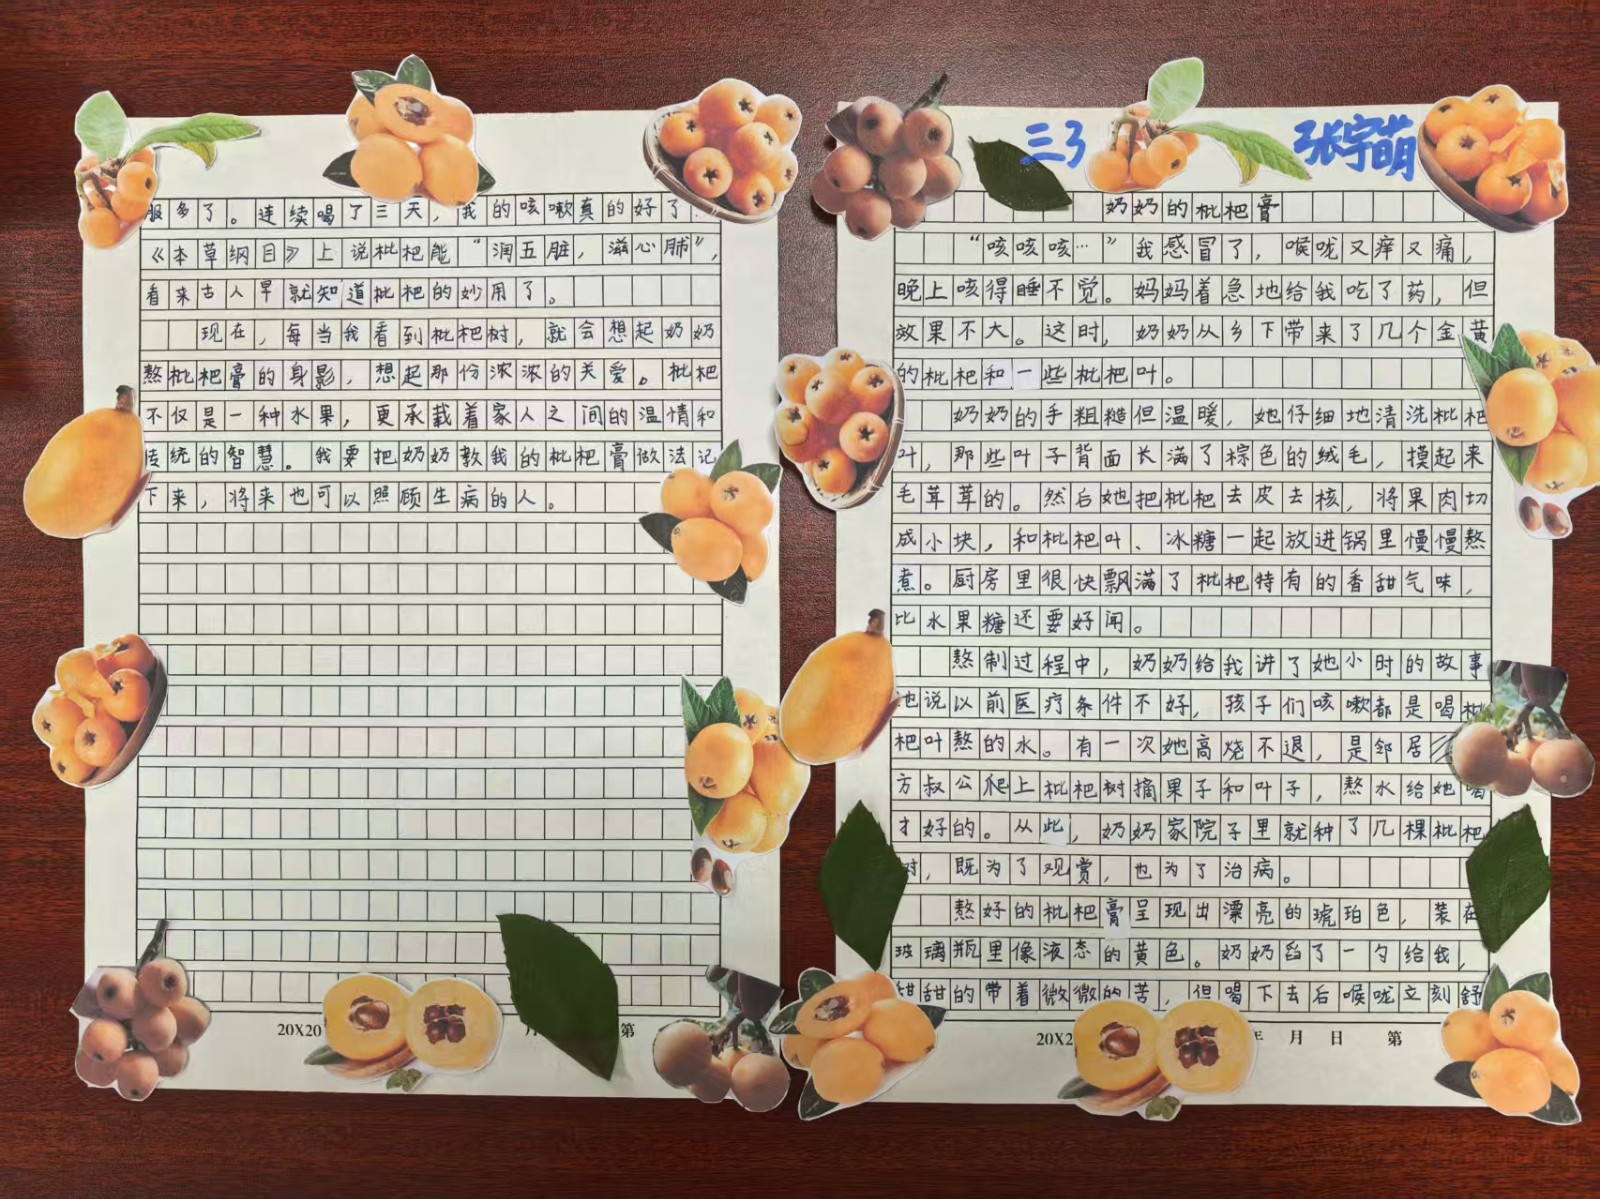 三3 张宇萌
奶奶的枇杷膏
“咳咳咳…”我感冒了，喉咙又痒又痛，
晚上咳得睡不觉。妈妈着急地给我吃了药，但
效果不大。这时，奶奶从乡下带来了几个金黄
的枇杷和一些枇杷叶。
奶奶的手粗糙但温暖，她仔细地清洗枇杷
叶，那些叶子背面长满了棕色的绒毛，摸起来
毛茸茸的。然后她把枇杷去皮去核，将果肉切
成小块，和枇杷叶、冰糖一起放进锅里慢慢熬
煮。厨房里很快飘满了枇杷特有的香甜气味，
比水果糖还要好闻。
熬制过程中，奶奶给我讲了她小时的故事
她说以前医疗条件不好，孩子们咳嗽都是喝枇
杷叶熬的水。有一次她高烧不退，是邻居
方叔公爬上枇杷树摘果子和叶子，熬水给她喝
才好的。从此，奶奶家院子里就种了几棵枇杷
树，既为了观赏，也为了治病。
熬好的枇杷膏呈现出漂亮的琥珀色，装在
玻璃瓶里像液态的黄色。奶奶舀了一勺给我，
甜甜的带着微微的苦，但喝下去后喉咙立刻舒
20X2 年 月 日 第
服多了。连续喝了三天，我的咳嗽真的好了
《本草纲目》上说枇杷能“润五脏，滋心肺”，
看来古人早就知道枇杷的妙用了。
现在，每当我看到枇杷树，就会想起奶奶
熬枇杷膏的身影，想起那份浓浓的关爱。枇杷
不仅是一种水果，更承载着家人之间的温情和
传统的智慧。我要把奶奶教我的枇杷膏做法记
下来，将来也可以照顾生病的人。
20X20 月 第